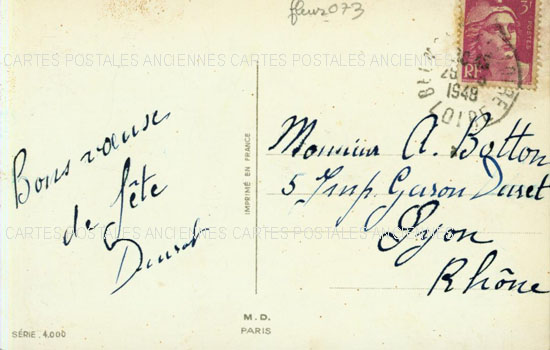 fleur073
3F
RF
1948
LOIRE
CARTES POSTALES ANCIENNES CARTES POSTALES ANCIENNES CARTES POSTALES ANCIENNES
Bons vœux
de fête
IMPRIMÉ EN FRANCE
Monsieur A. Botton
5 Imp. Gazon Duret
CARTES POSTALES ANCIENNES CARTES POSTALES ANCIENNES CARTES POSTALES ANCIENNES
Lyon
Rhône
M.D.
PARIS
SÉRIE. 4.000